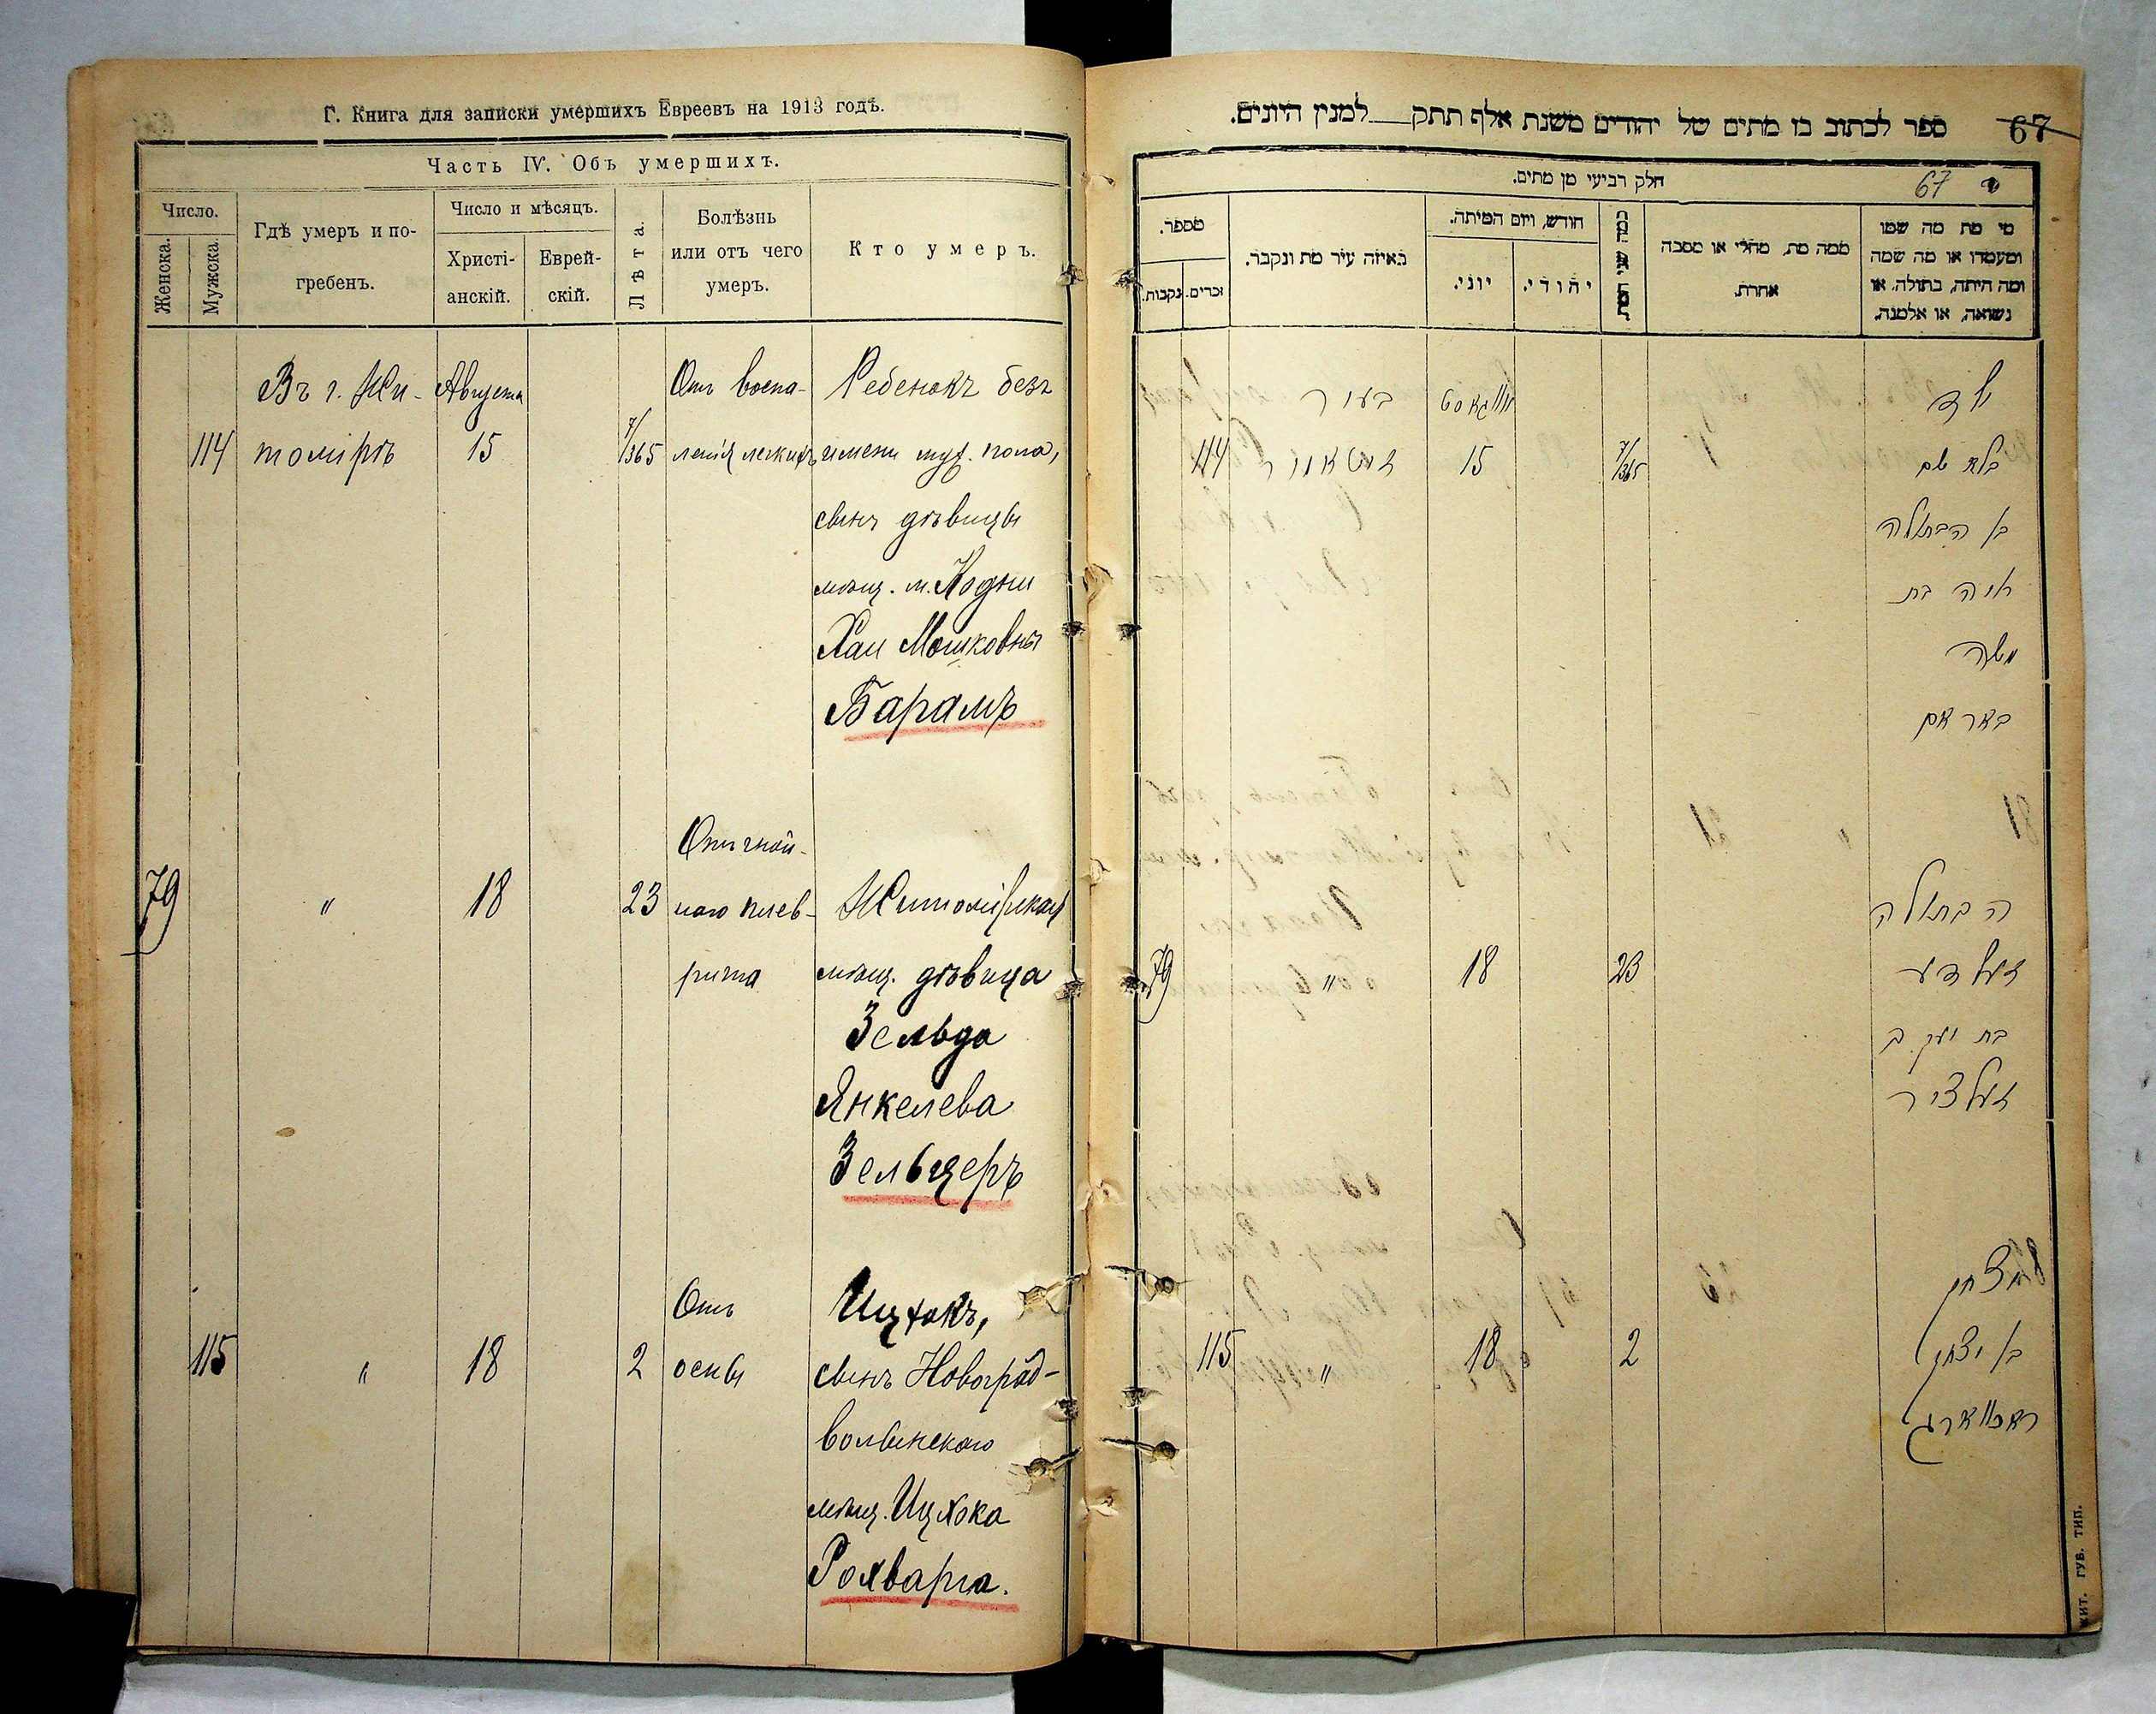 Г. Книга для записки умершихъ Евреевъ на 1913 годъ.
Часть IV. Объ умершихъ.
Число.
Женска.
Мужска.
Гдѣ умеръ и по-
гребенъ.
Число и мѣсяцъ.
Христі-
анскій.
Еврей-
скій.
Лѣта.
Болѣзнь
или отъ чего
умеръ.
Кто умеръ.
Въ г. Жи- Августа Отъ воспа- Ребенокъ безъ
114 томірѣ 15 7/365 ленія легкихъ имени муж. пола,
сынъ дѣвицы
мѣщ. м. Кодни
Хаи Мошковны
Барамъ
Отъ гной-
79 " 18 23 наго плев- Житомірская
рита мѣщ. дѣвица
Зельда
Янкелева
Зельцеръ
Отъ Ицхокъ,
115 " 18 2 оспы сынъ Новоград-
волынскаго
мѣщ. Ицхока
Рохварга.
ספר לכתוב בו מתים של יהודים משנת אלף תתק למנין היונים.
67
חלק רביעי מן מתים.
67
מספר.
זכרים.
נקבות.
באיזה עיר מת ונקבר.
חודש, ויום המיתה.
יוני.
יהודי.
כמה שני המת
ממה מת, מחלי או מסבה
אחרת.
מי מת מה שמו
ומעמדו או מה שמה
ומה היתה, בתולה, או
נשואה, או אלמנה.
ילד
בעיר
אווגאסט
בלא שם
114 זיטאמיר 15 7/365
בן הבתולה
חיה בת
משה
באראם
הבתולה
79 " 18 23 זעלדע
בת יעקב
זעלציר
יצחק
115 " 18 2 בן יצחק
ראכווארג
ЖИТ. ГУБ. ТИП.